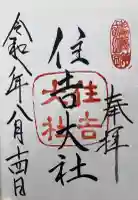 奉拝
住吉大社
住吉
大社
令和八年八月十四日